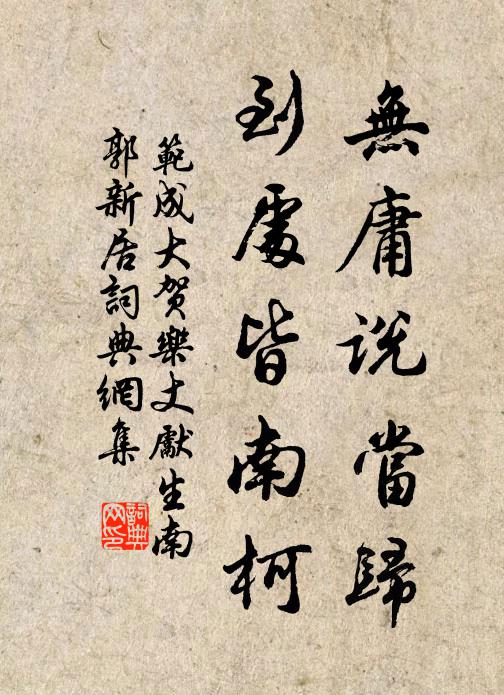 無庸說當歸
到處皆南柯
範成大賀樂丈獻生南
郭新居詞典網集
詞典网印